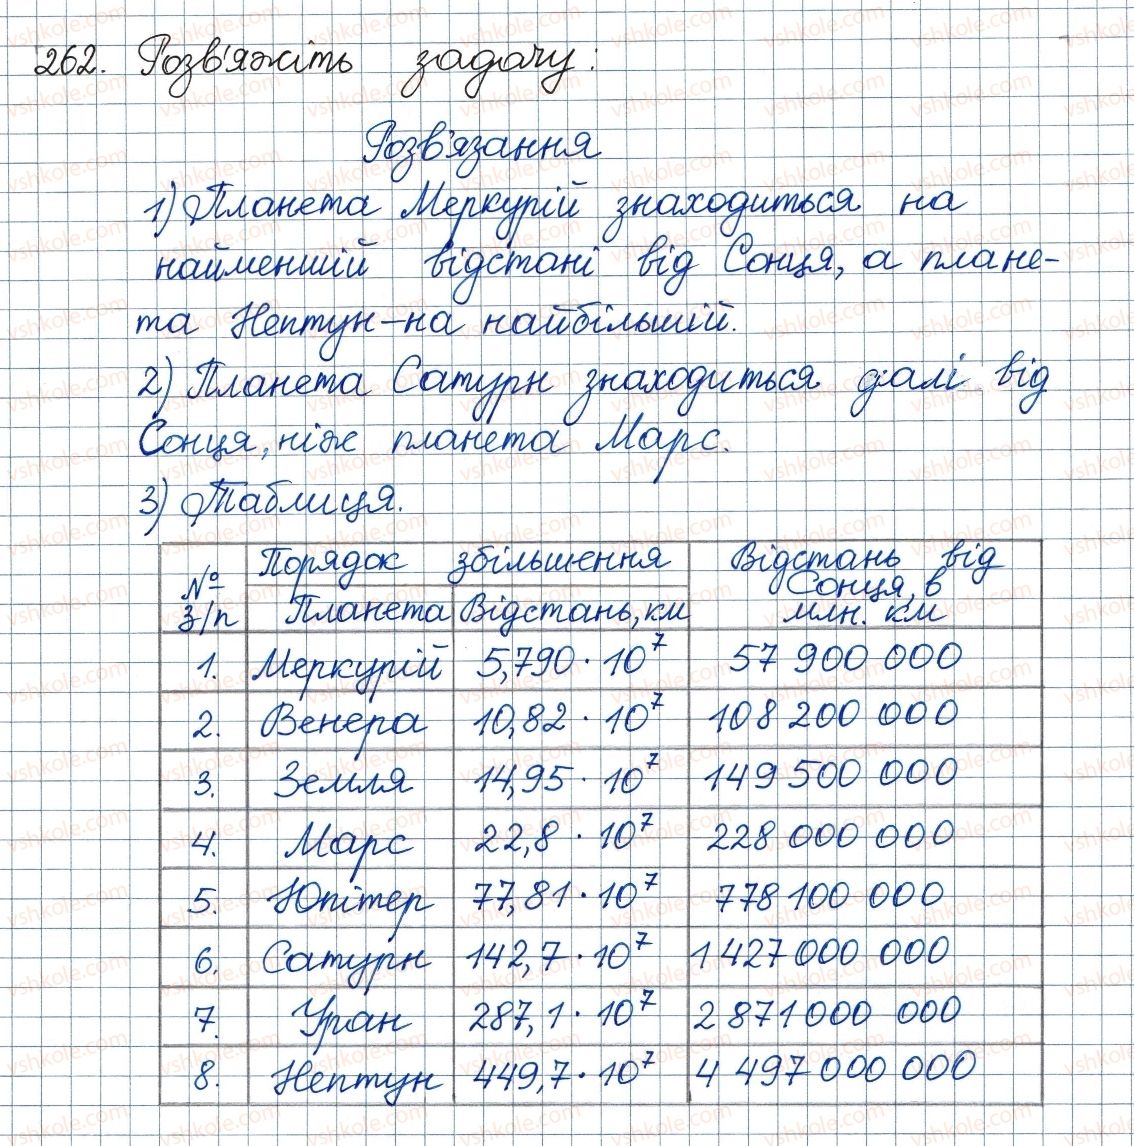 262. Розв'яжіть задачу:
Розв'язання
1) Планета Меркурій знаходиться на
найменшій відстані від Сонця, а плане-
та Нептун – на найбільшій.
2) Планета Сатурн знаходиться далі від
Сонця, ніж планета Марс.
3) Таблиця.
№ з/п Порядок збільшення Відстань від Сонця, в млн. км
Планета Відстань, км
1. Меркурій 5,790 · 10⁷ 57 900 000
2. Венера 10,82 · 10⁷ 108 200 000
3. Земля 14,95 · 10⁷ 149 500 000
4. Марс 22,8 · 10⁷ 228 000 000
5. Юпітер 77,81 · 10⁷ 778 100 000
6. Сатурн 142,7 · 10⁷ 1 427 000 000
7. Уран 287,1 · 10⁷ 2 871 000 000
8. Нептун 449,7 · 10⁷ 4 497 000 000
vshkole.com